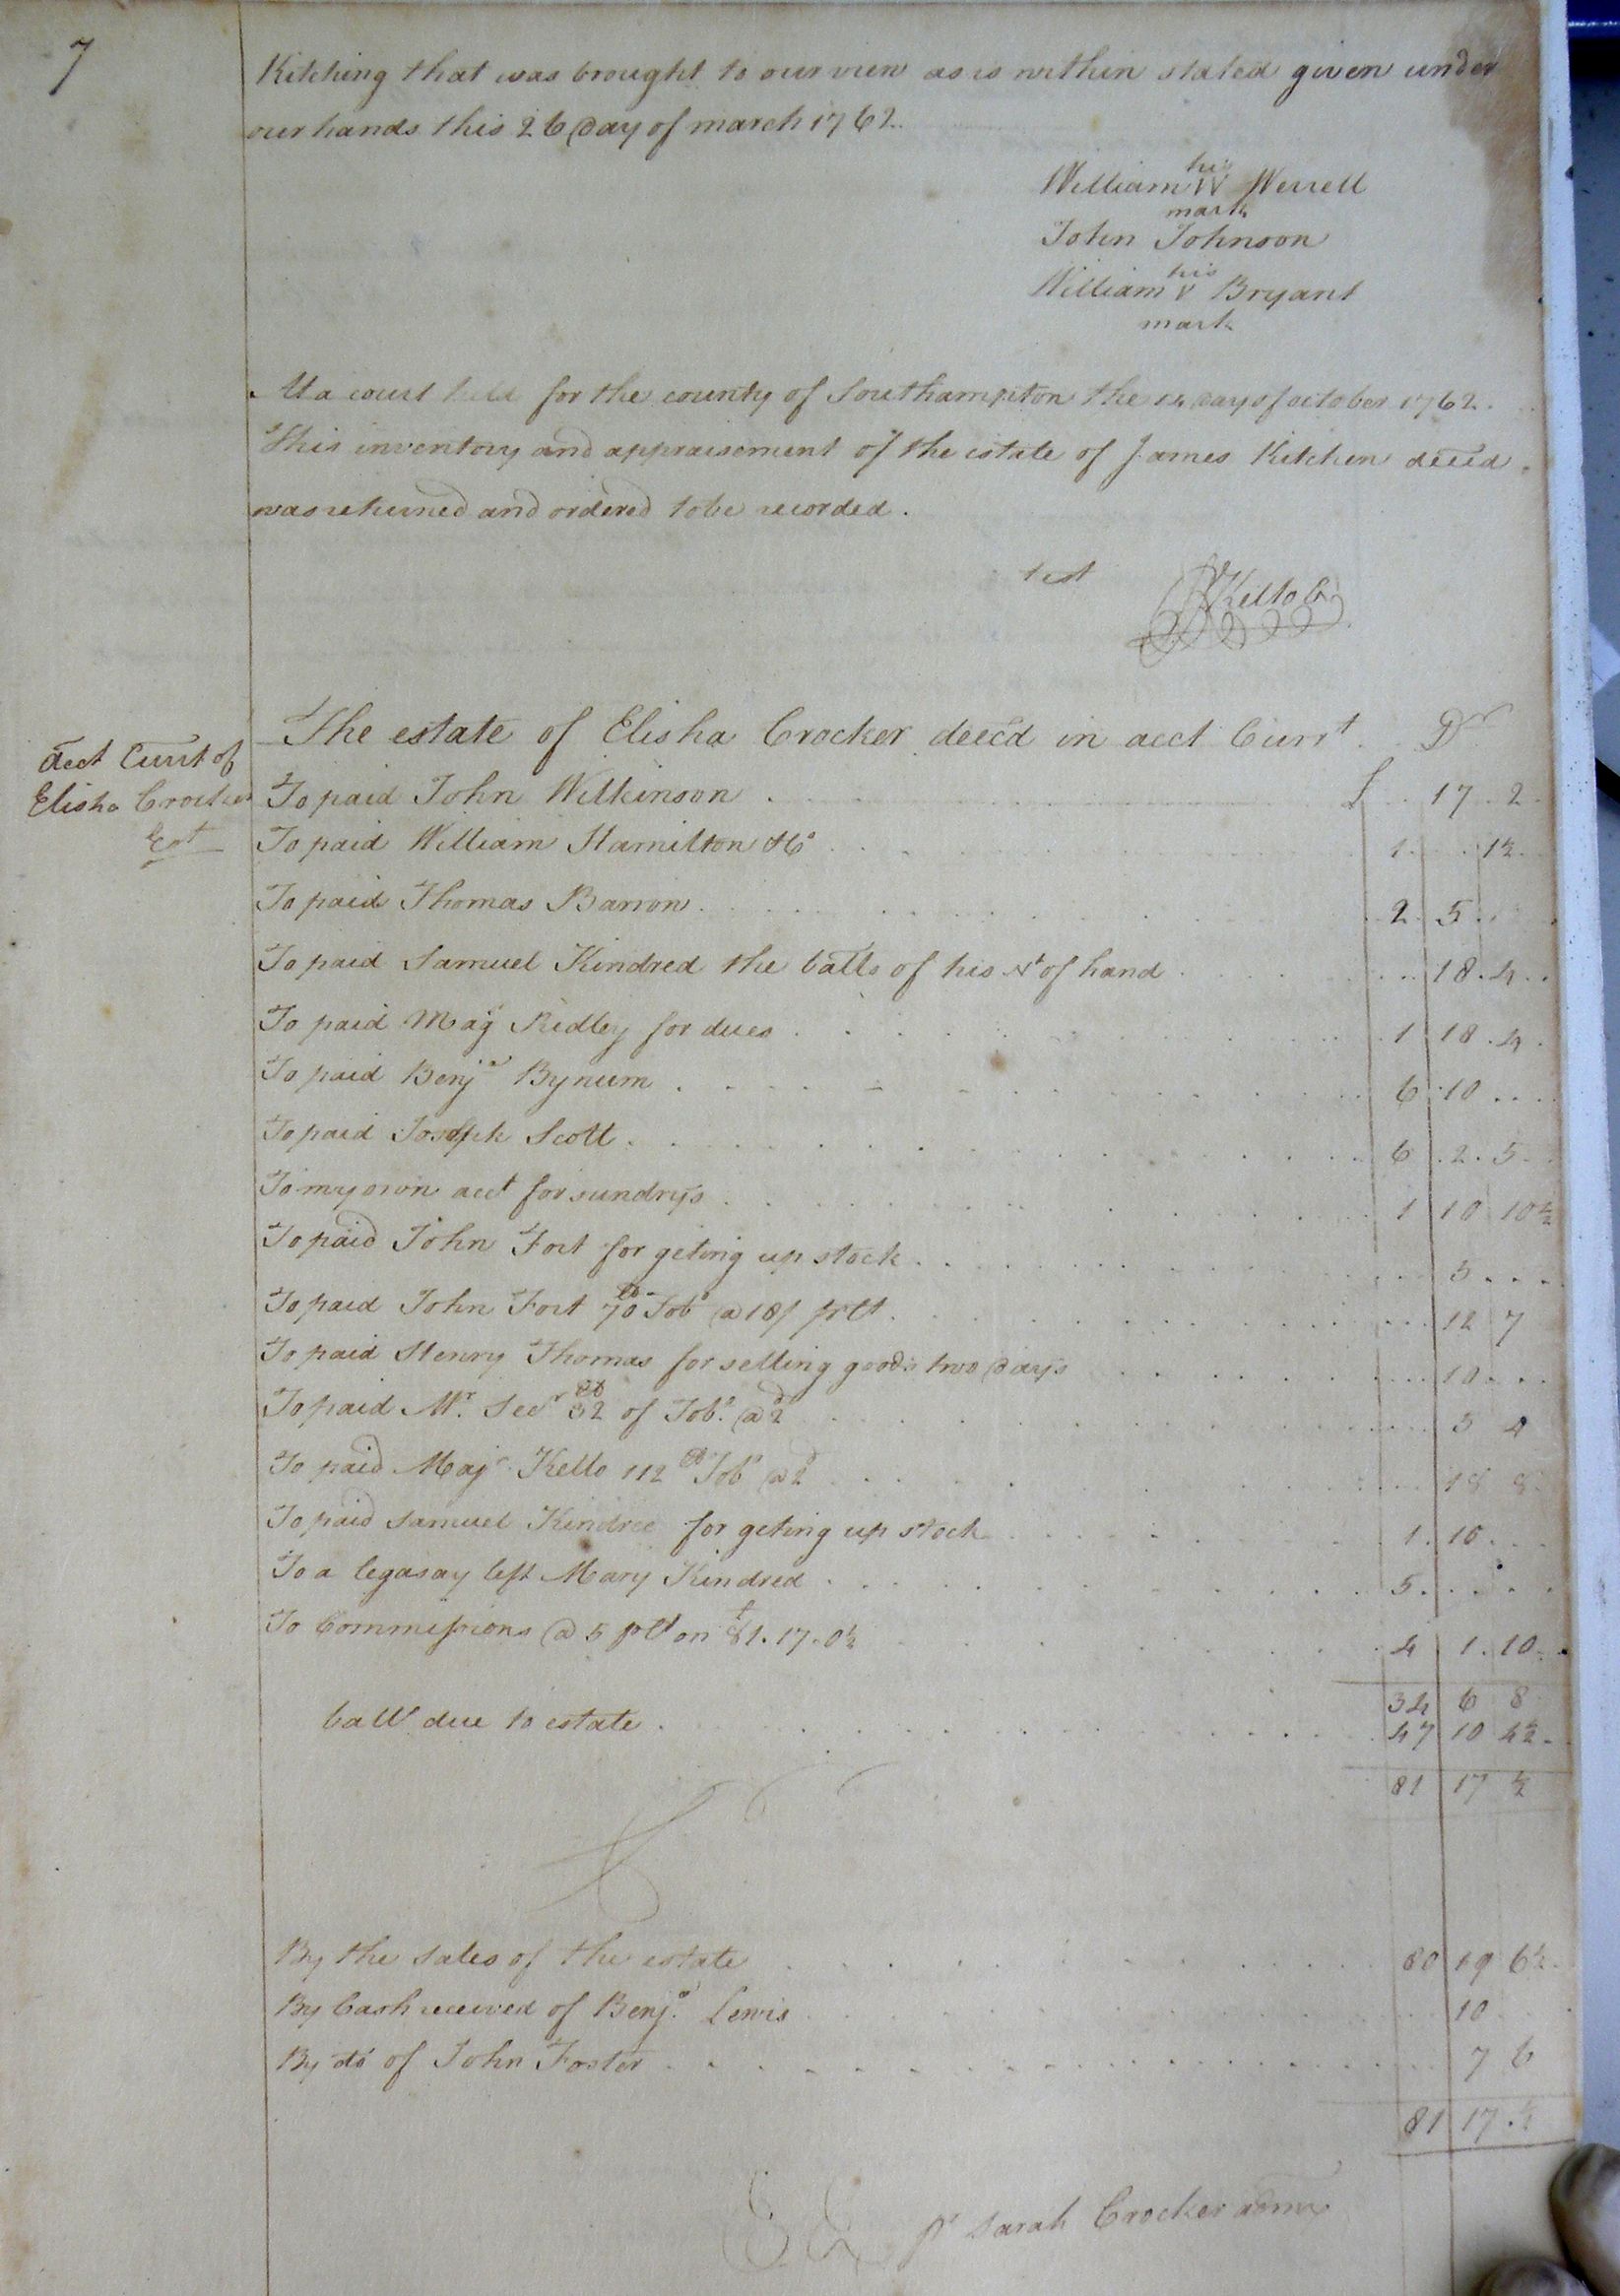 7
Kitching that was brought to our view as is within stated given under
our hands this 26 Day of march 1762.
his
William W Werrell
mark
John Johnson
his
William V Bryant
mark
At a court held for the county of Southampton the 14 day of october 1762.
This inventory and appraisement of the estate of James Kitchen deced
was returned and ordered to be recorded.
test
Kello C
The estate of Elisha Crocker deec'd in acct Currt Dr
Acct Curt of
Elisha Crocker
Est
To paid John Wilkinson £ 17 2
To paid William Hamilton &Co 1 1½
To paid Thomas Barron 2 5
To paid Samuel Kindred the balls of his Nt of hand 18 4
To paid Majr Ridley for dues 1 18 4
To paid Benja Bynum 6 10
To paid Joseph Scott 6 2 5
To my own acct for sundrys 1 10 10½
To paid John Fort for geting up stock 5
To paid John Fort 70 lb Tobo @ 18/ pr Ct 12 7
To paid Henry Thomas for selling goods two Days 10
To paid Mr. Secr 32 lb of Tobo @ 2d 5 4
To paid Majr Kello 112 lb Tobo @ 2d 18 8
To paid Samuel Kindred for geting up stock 1 10
To a legasay left Mary Kindred 5
To Commissions @ 5 pr Ct on £81.17.0½ 4 1 10
34 6 8
balle due to estate 47 10 4½
81 17 ½
By the sales of the estate 80 19 6½
By Cash received of Benja Lewis 10
By do of John Foster 7 6
81 17 ½
pr Sarah Crocker admx